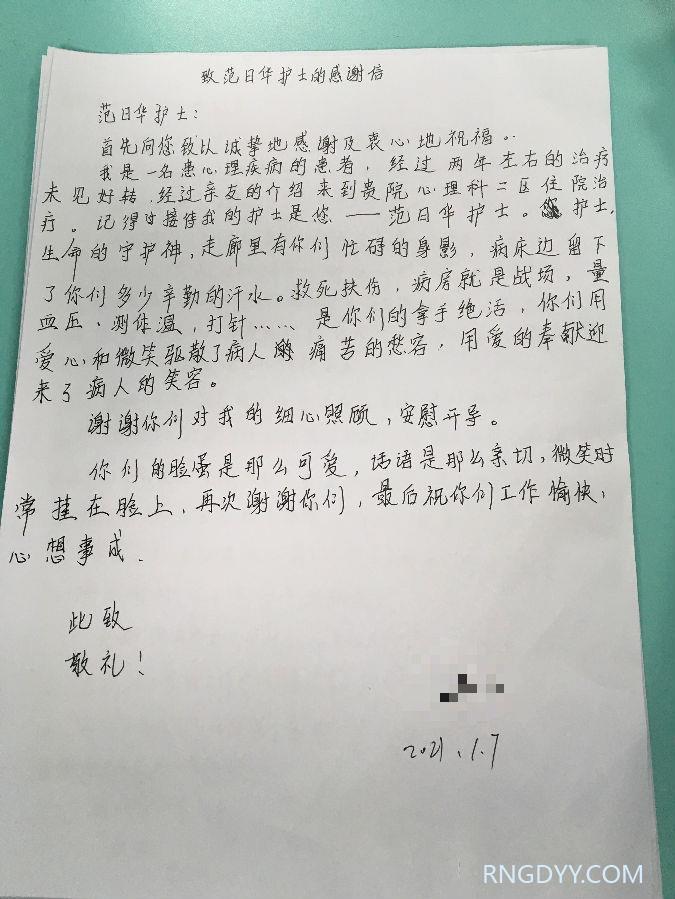 致范日华护士的感谢信
范日华护士：
首先向您致以诚挚地感谢及衷心地祝福。
我是一名患心理疾病的患者，经过两年左右的治疗
未见好转，经过亲友的介绍来到贵院心理科二区住院治
疗。记得接待我的护士是您——范日华护士。护士，
生命的守护神，走廊里有你们忙碍的身影，病床边留下
了你们多少辛勤的汗水。救死扶伤，病房就是战场，量
血压、测体温，打针……是你们的拿手绝活，你们用
爱心和微笑驱散了病人痛苦的愁容，用爱的奉献迎
来了病人的笑容。
谢谢你们对我的细心照顾，安慰开导。
你们的脸蛋是那么可爱，话语是那么亲切，微笑时
常挂在脸上，再次谢谢你们，最后祝你们工作愉快，
心想事成．
此致
敬礼！
2021.1.7
RNGDYY.COM